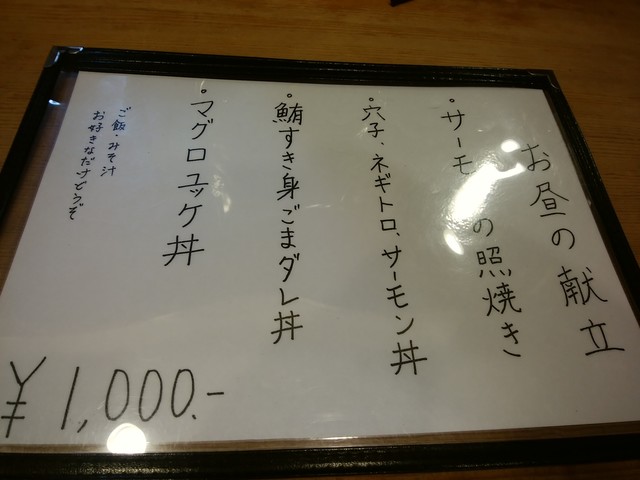 お昼の献立
・サーモ の照焼き
・穴子、ネギトロ、サーモン丼
・鮪すき身ごまダレ丼
・マグロユッケ丼
ご飯・みそ汁
お好きなだけどうぞ
¥1,000.-